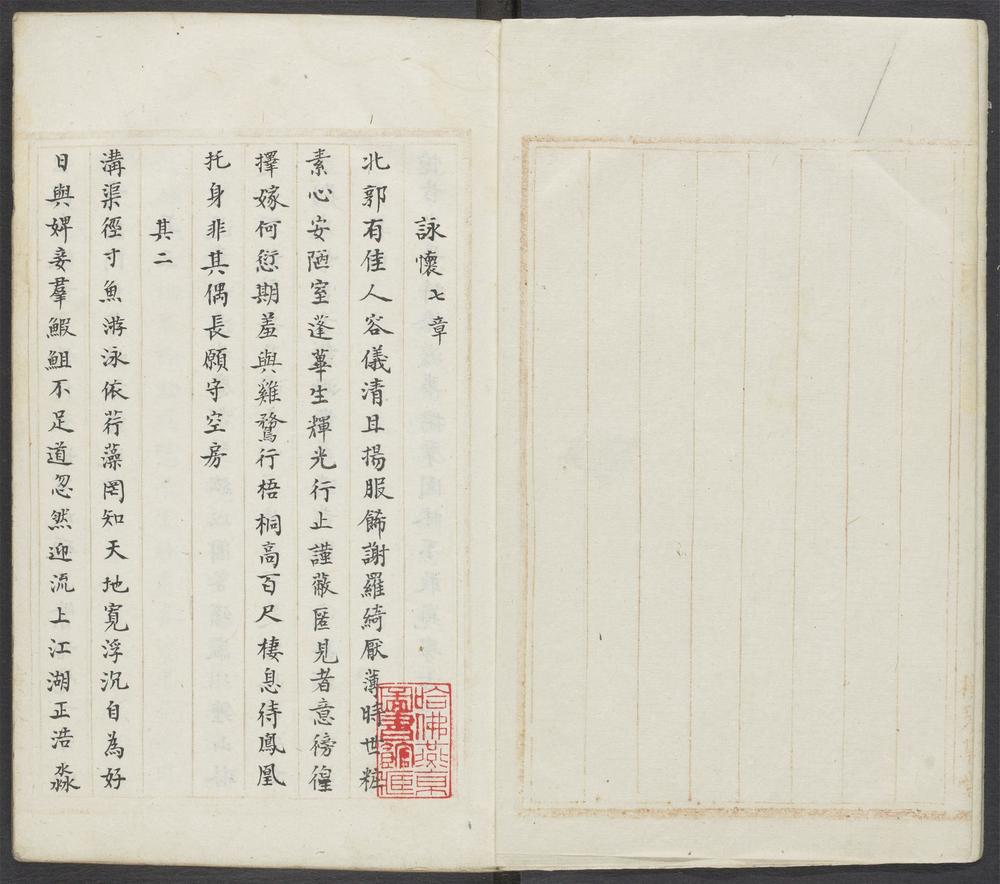 詠懷七章
北郭有佳人容儀清且揚服飾謝羅綺厭薄時世粧
素心安陋室蓬蓽生輝光行止謹蔽匿見者意徬徨
擇嫁何愆期羞與雞鶩行梧桐高百尺棲息待鳳凰
托身非其偶長願守空房
其二
溝渠徑寸魚游泳依荇藻罔知天地寬浮沉自為好
日與婢妾羣鰕鉏不足道忽然迎流上江湖正浩淼
哈佛燕京
圖書館